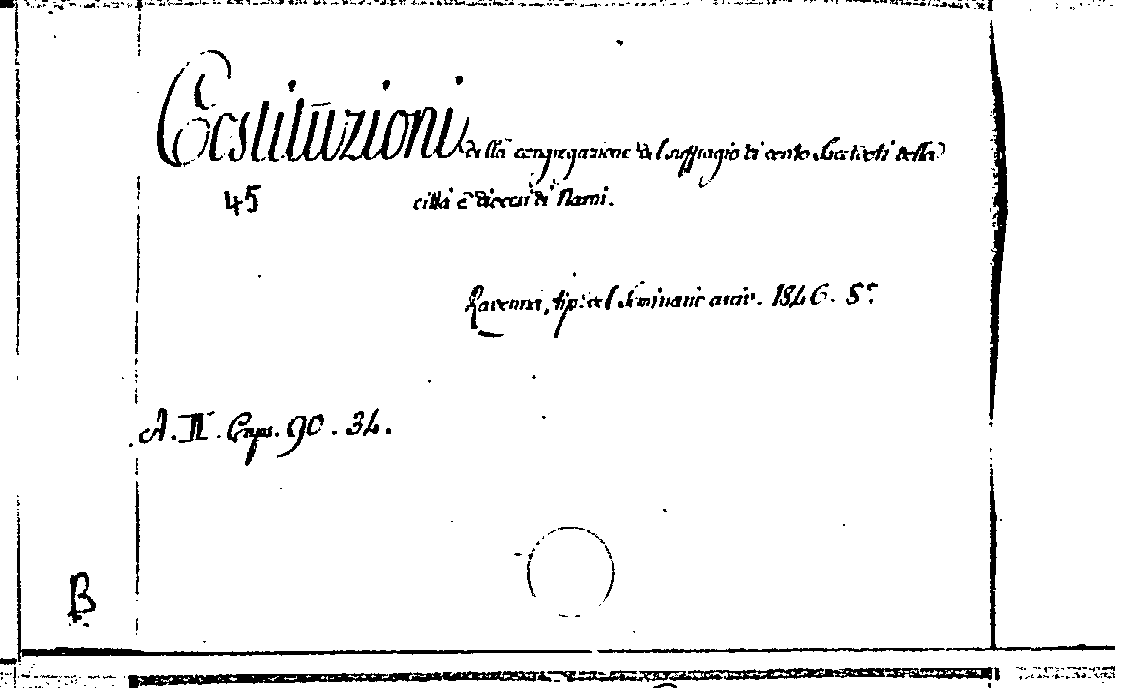 Costituzioni della congregazione del suffragio di cento Sacerdoti della
45 città e diocesi di Narni.
Ravenna, tip: del Seminario arciv. 1846. 8°
A. II. Caps. 90. 34.
B